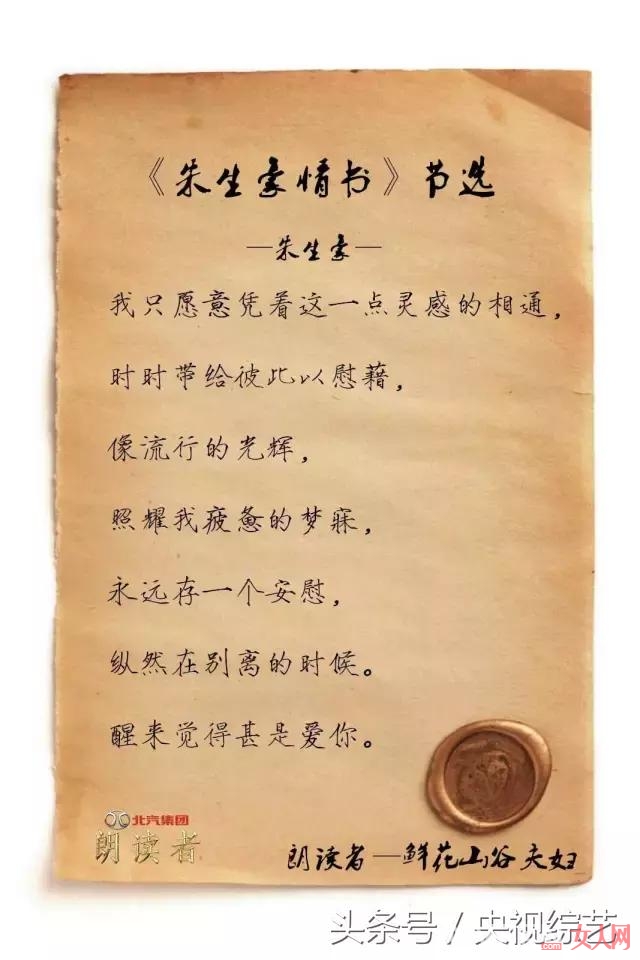 《朱生豪情书》节选
—朱生豪—
我只愿意凭着这一点灵感的相通，
时时带给彼此以慰藉，
像流行的光辉，
照耀我疲惫的梦寐，
永远存一个安慰，
纵然在别离的时候。
醒来觉得甚是爱你。
北汽集团
朗读者
朗读者—鲜花山谷夫妇
头条号 / 央视综艺
女人网